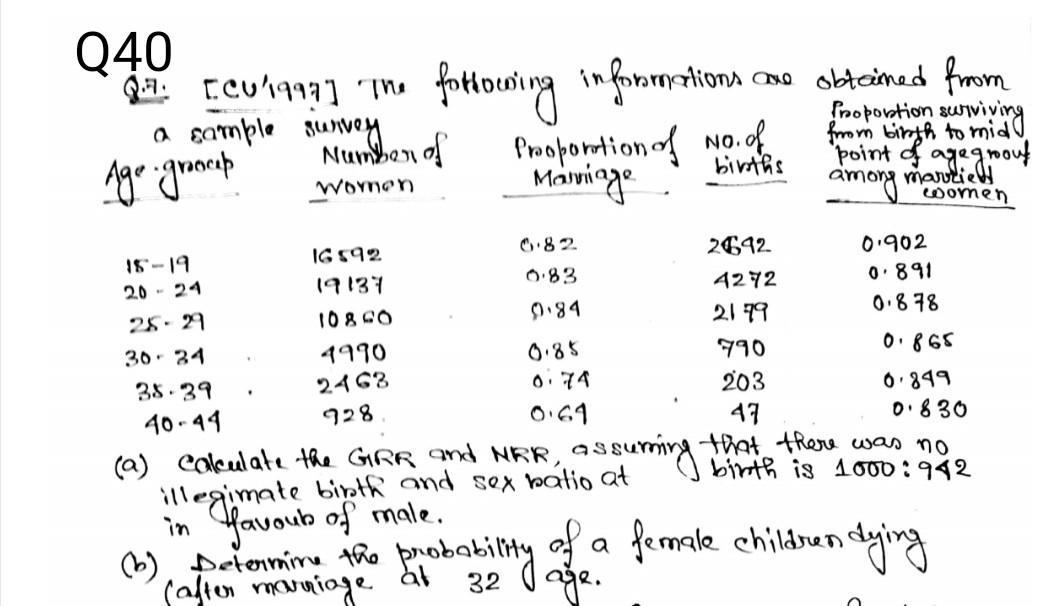 Q40
Q.7. [CU'1997] The following informations are obtained from
a sample survey
Age-group Number of Women Proportion of Marriage No. of births Proportion surviving from birth to mid point of agegroup among married women
15-19 16592 0.82 2692 0.902
20-24 19137 0.83 4272 0.891
25-29 10860 0.84 2179 0.878
30-34 4990 0.85 790 0.865
35-39 2463 0.74 203 0.849
40-44 928 0.64 47 0.830
(a) Calculate the GRR and NRR, assuming that there was no
illegimate birth and sex ratio at birth is 1000:942
in favoub of male.
(b) Determine the probability of a female children dying
(after marriage at 32 age.